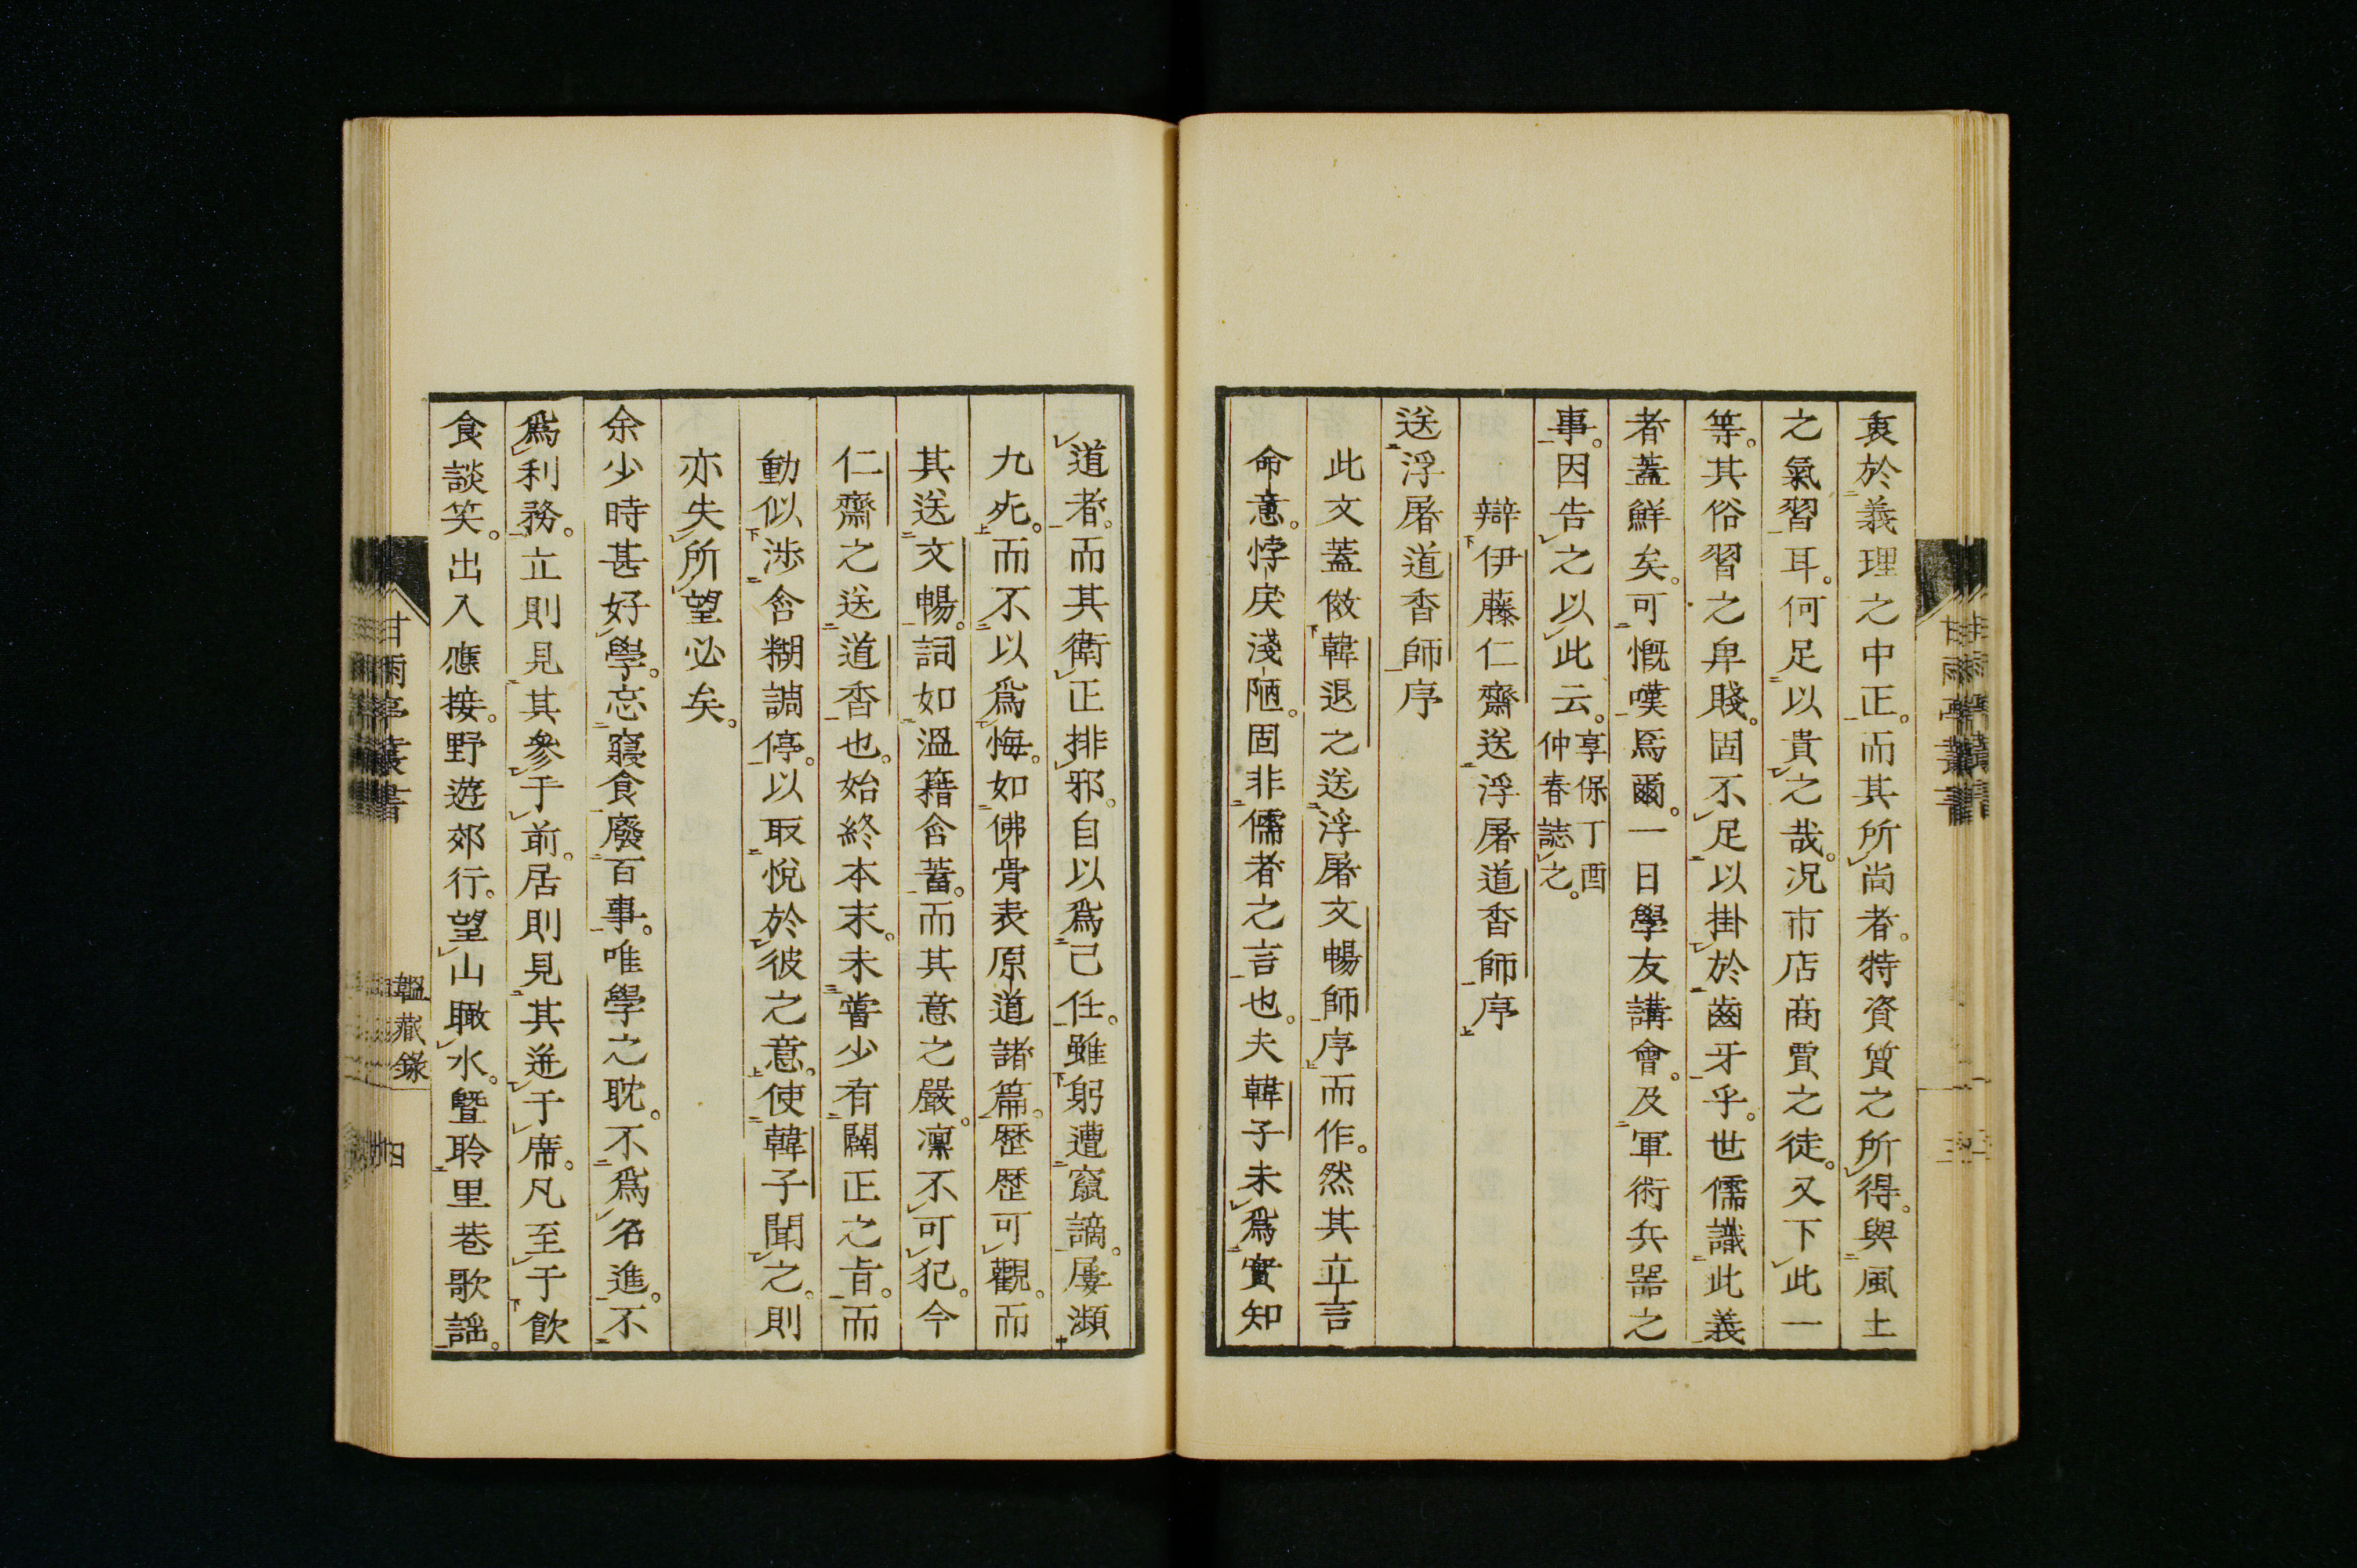 衷於義理之中正。而其所尚者。特資質之所得。與風土
之氣習耳。何足以貴之哉。況市店商賈之徒。又下此一
等。其俗習之卑賤。固不足以掛於齒牙乎。世儒識此義
者蓋鮮矣。可慨嘆焉爾。一日學友講會。及軍術兵器之
事。因告之以此云。享保丁酉
仲春誌之。
辯伊藤仁齋送浮屠道香師序
送浮屠道香師序
此文蓋傚韓退之送浮屠文暢師序而作。然其立言
命意。悖戾淺陋。固非儒者之言也。夫韓子未爲實知
道者。而其衛正排邪。自以爲己任。雖躬遭竄謫。屢瀕
九死。而不以爲悔。如佛骨表原道諸篇。歷歷可觀。而
其送文暢。詞如溫籍含蓄。而其意之嚴。凛不可犯。今
仁齋之送道香也。始終本末。未嘗少有闢正之旨。而
動似涉含糊調停。以取悅於彼之意。使韓子聞之。則
亦失所望必矣。
余少時甚好學。忘寢食廢百事。唯學之耽。不爲名進。不
爲利務。立則見其參于前。居則見其迸于席。凡至于飲
食談笑。出入應接。野遊郊行。望山瞰水。曁聆里巷歌謠。
甘雨亭叢書
韞藏錄
四